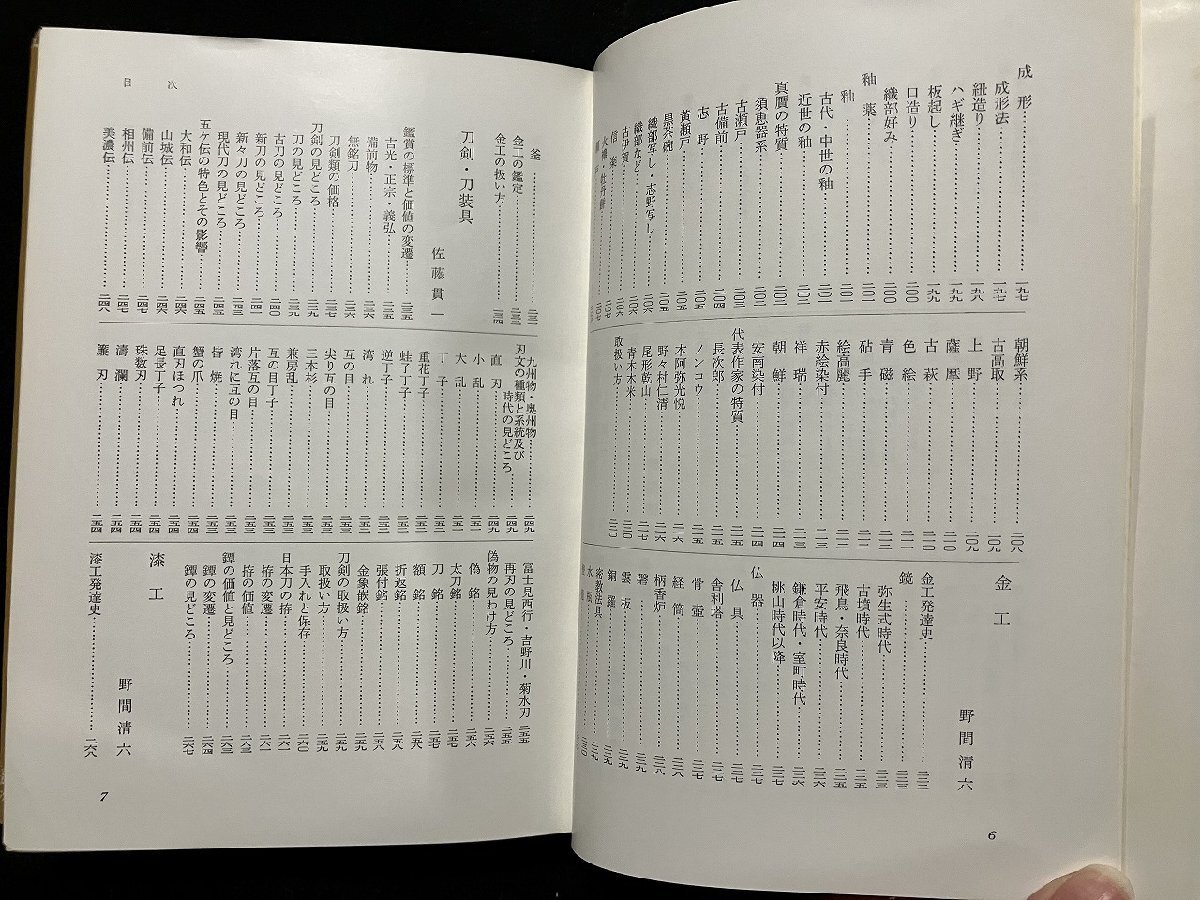 成形……一九七
成形法……一九七
紐造り……一九八
ハギ継ぎ……一九九
板起し……一九九
口造り……二〇〇
織部好み……二〇〇
釉薬……二〇一
釉……二〇一
古代・中世の釉……二〇一
近世の釉……二〇二
真贋の特質……二〇二
須恵器系……二〇二
古瀬戸……二〇三
古備前……二〇四
志野……二〇五
黄瀬戸……二〇五
織部など……二〇六
織部写し・志野写し……二〇五
古伊賀……二〇六
信楽……二〇六
朝鮮系……二〇八
古高取……二〇九
上野……二〇九
薩摩……二一〇
古萩……二一〇
色絵……二一一
青磁……二一一
砧手……二一二
絵高麗……二一二
赤絵染付……二一三
祥瑞……二一三
朝鮮……二一四
安南染付……二一四
代表作家の特質……二一五
長次郎……二一五
ノンコウ……二一五
本阿弥光悦……二一六
野々村仁清……二一七
尾形乾山……二一七
青木木米……二二〇
取扱い方……二二〇
金工
野間清六
金工発達史……二二二
鏡……二二三
弥生式時代……二二三
古墳時代……二二五
飛鳥・奈良時代……二二五
平安時代……二二五
鎌倉時代・室町時代……二二六
桃山時代以降……二二七
仏器……二二七
仏具……二二七
舎利塔……二二七
骨壷……二二七
経筒……二二八
柄香炉……二二八
磬……二二九
雲板……二二九
銅鑼……二二九
密教法具……二二九
水瓶……二三〇
6
目次
釜……二三一
金工の鑑定……二三三
金工の扱い方……二三四
刀剣・刀装具
佐藤貫一
鑑賞の標準と価値の変遷……二三五
吉光・正宗・義弘……二三五
備前物……二三六
無銘刀……二三六
刀剣類の価格……二三七
刀剣の見どころ……二三九
刀の見どころ……二三九
古刀の見どころ……二四〇
新刀の見どころ……二四一
新々刀の見どころ……二四三
現代刀の見どころ……二四四
五ケ伝の特色とその影響……二四五
大和伝……二四六
山城伝……二四六
備前伝……二四七
相州伝……二四七
美濃伝……二四八
九州物・奥州物……二四九
刃文の種類と系統及び
時代の見どころ……二四九
直刃……二四九
小乱……二五一
大乱……二五一
丁子……二五二
重花丁子……二五二
蛙丁丁子……二五二
逆丁子……二五二
湾れ……二五二
互の目……二五二
尖り互の目……二五三
三本杉……二五三
兼房乱……二五三
互の目丁子……二五三
片落互の目……二五三
湾れに互の目……二五三
蟹の爪……二五三
直刃ほつれ……二五四
足長丁子……二五四
珠数刃……二五四
濤瀾……二五四
簾刃……二五四
富士見西行・吉野川・菊水刃……二五五
再刃の見どころ……二五五
偽物の見わけ方……二五六
偽銘……二五六
太刀銘……二五七
刀銘……二五七
額銘……二五八
折返銘……二五八
張付銘……二五八
金象嵌銘……二五九
刀剣の取扱い方……二五九
取扱い方……二五九
手入れと保存……二六〇
日本刀の拵……二六一
拵の変遷……二六一
拵の価値……二六三
鐔の価値と見どころ……二六三
鐔の変遷……二六四
鐔の見どころ……二六七
漆工
野間清六
漆工発達史……二六八
7